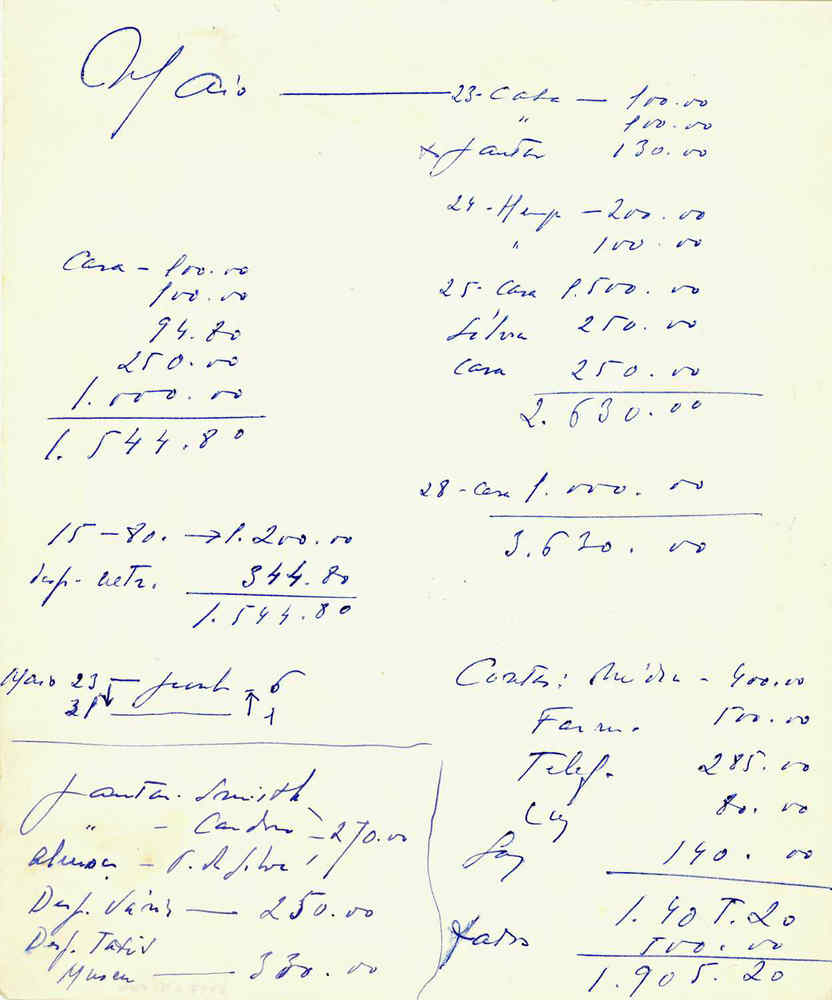 Maio — 23 - Casa — 100.00
" 100.00
x Jantar 130.00
24 - Hemp — 200.00
" 100.00
25 - Casa 1.500.00
Silvia 250.00
Casa 250.00
2.630.00
28 - Casa 1.000.00
3.630.00
Casa - 100.00
100.00
94.80
250.00
1.000.00
1.544.80
15 - 80. → 1.200.00
Desp. 344.80
1.544.80
Maio 23 — Junh - 6
31 — 1
Contas: Média - 400.00
Farm. 500.00
Telef. 285.00
Luz 80.00
Gaz 140.00
1.405.20
500.00
1.905.20
Jantar. Smith
" - Candido - 270.00
Almoço - P. da Silva
Desp. Várias — 250.00
Desp. Taxis
Museu — 330.00